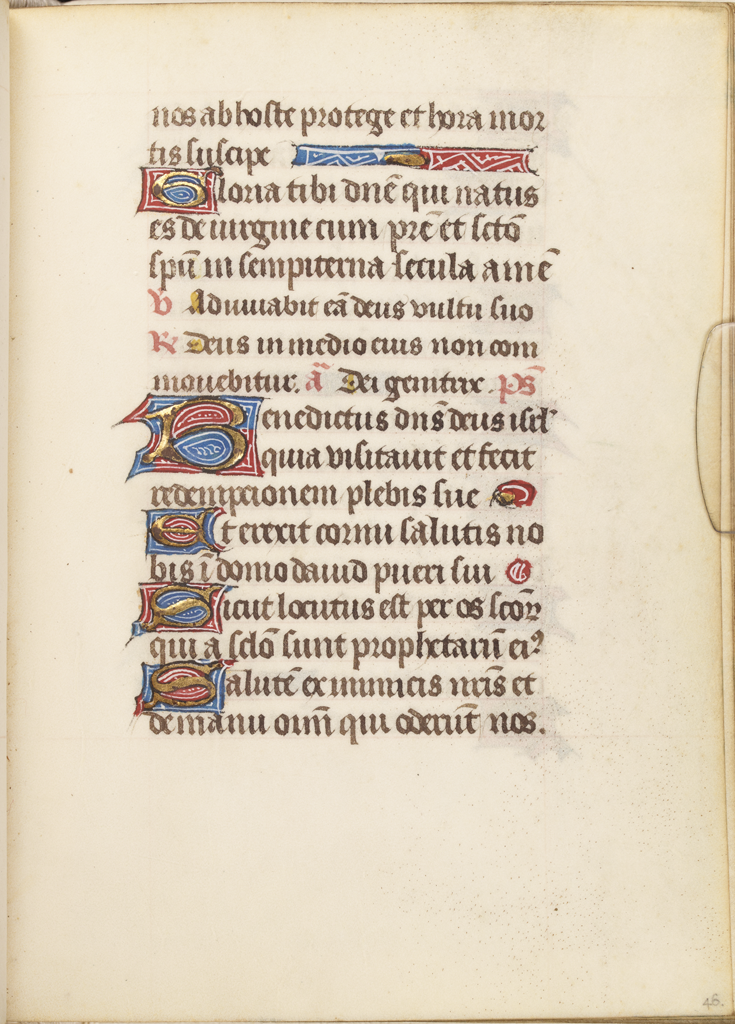 nos ab hoste protege et hora mor
tis suscipe
Gloria tibi dnē qui natus
es de uirgine cum prē et sctō
spū in sempiterna secula amē
V Adiuuabit eā deus vultu suo
R Deus in medio eius non com
mouebitur. a̅ Dei genitrix. ps̄
Benedictus dn̄s deus isrl'
quia visitauit et fecit
redempcionem plebis sue
Et erexit cornu salutis no
bis ī domo dauid pueri sui
Sicut locutus est per os scōꝝ
qui a sclō sunt prophetarū eiꝰ
Salutē ex inimicis nr̄is et
de manu oīm qui oderūt nos.
46.